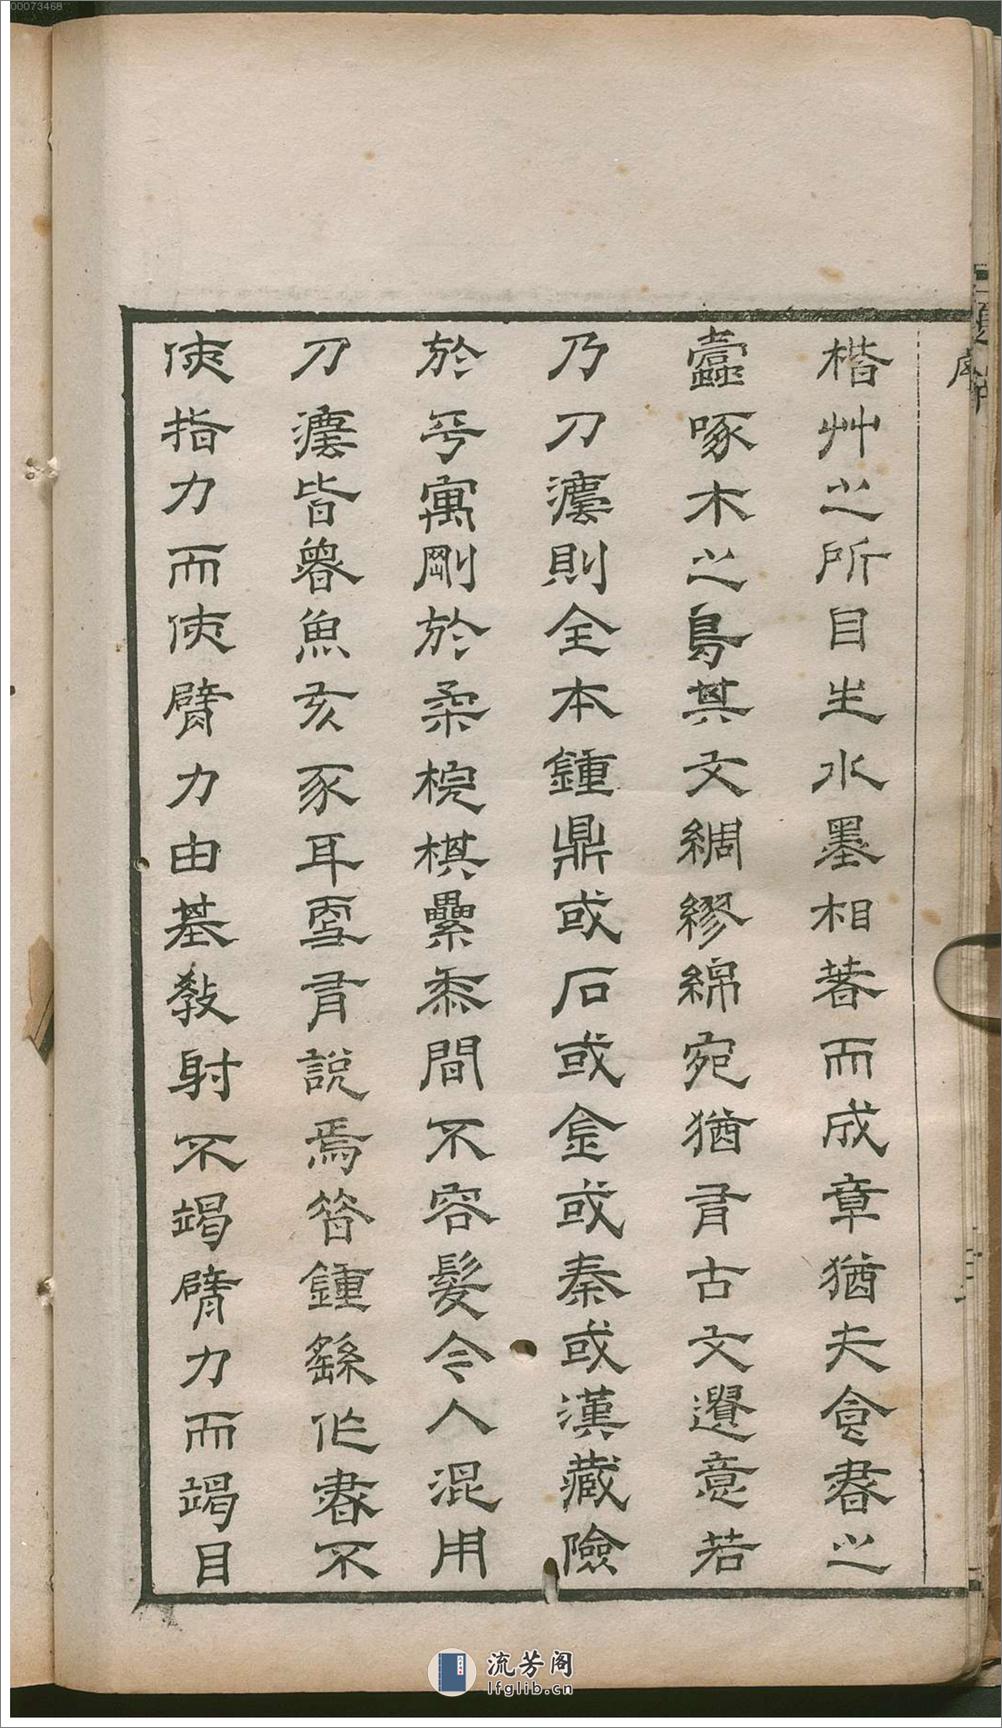 楷艸之所目生水墨相著而成章猶夫食書之
蠹啄木之鳥其文綢繆綿宛猶有古文遺意若
乃刀瀍則全本鍾鼎或石或金或秦或漢藏險
於平寓剛於柔梡棋纍黍間不容髮令人混用
刀瀍皆魯魚亥豕耳雪有說焉昔鍾繇作書不
使指力而使臂力由基敎射不竭臂力而竭目
序
00073468
流芳阁
lfglib.cn